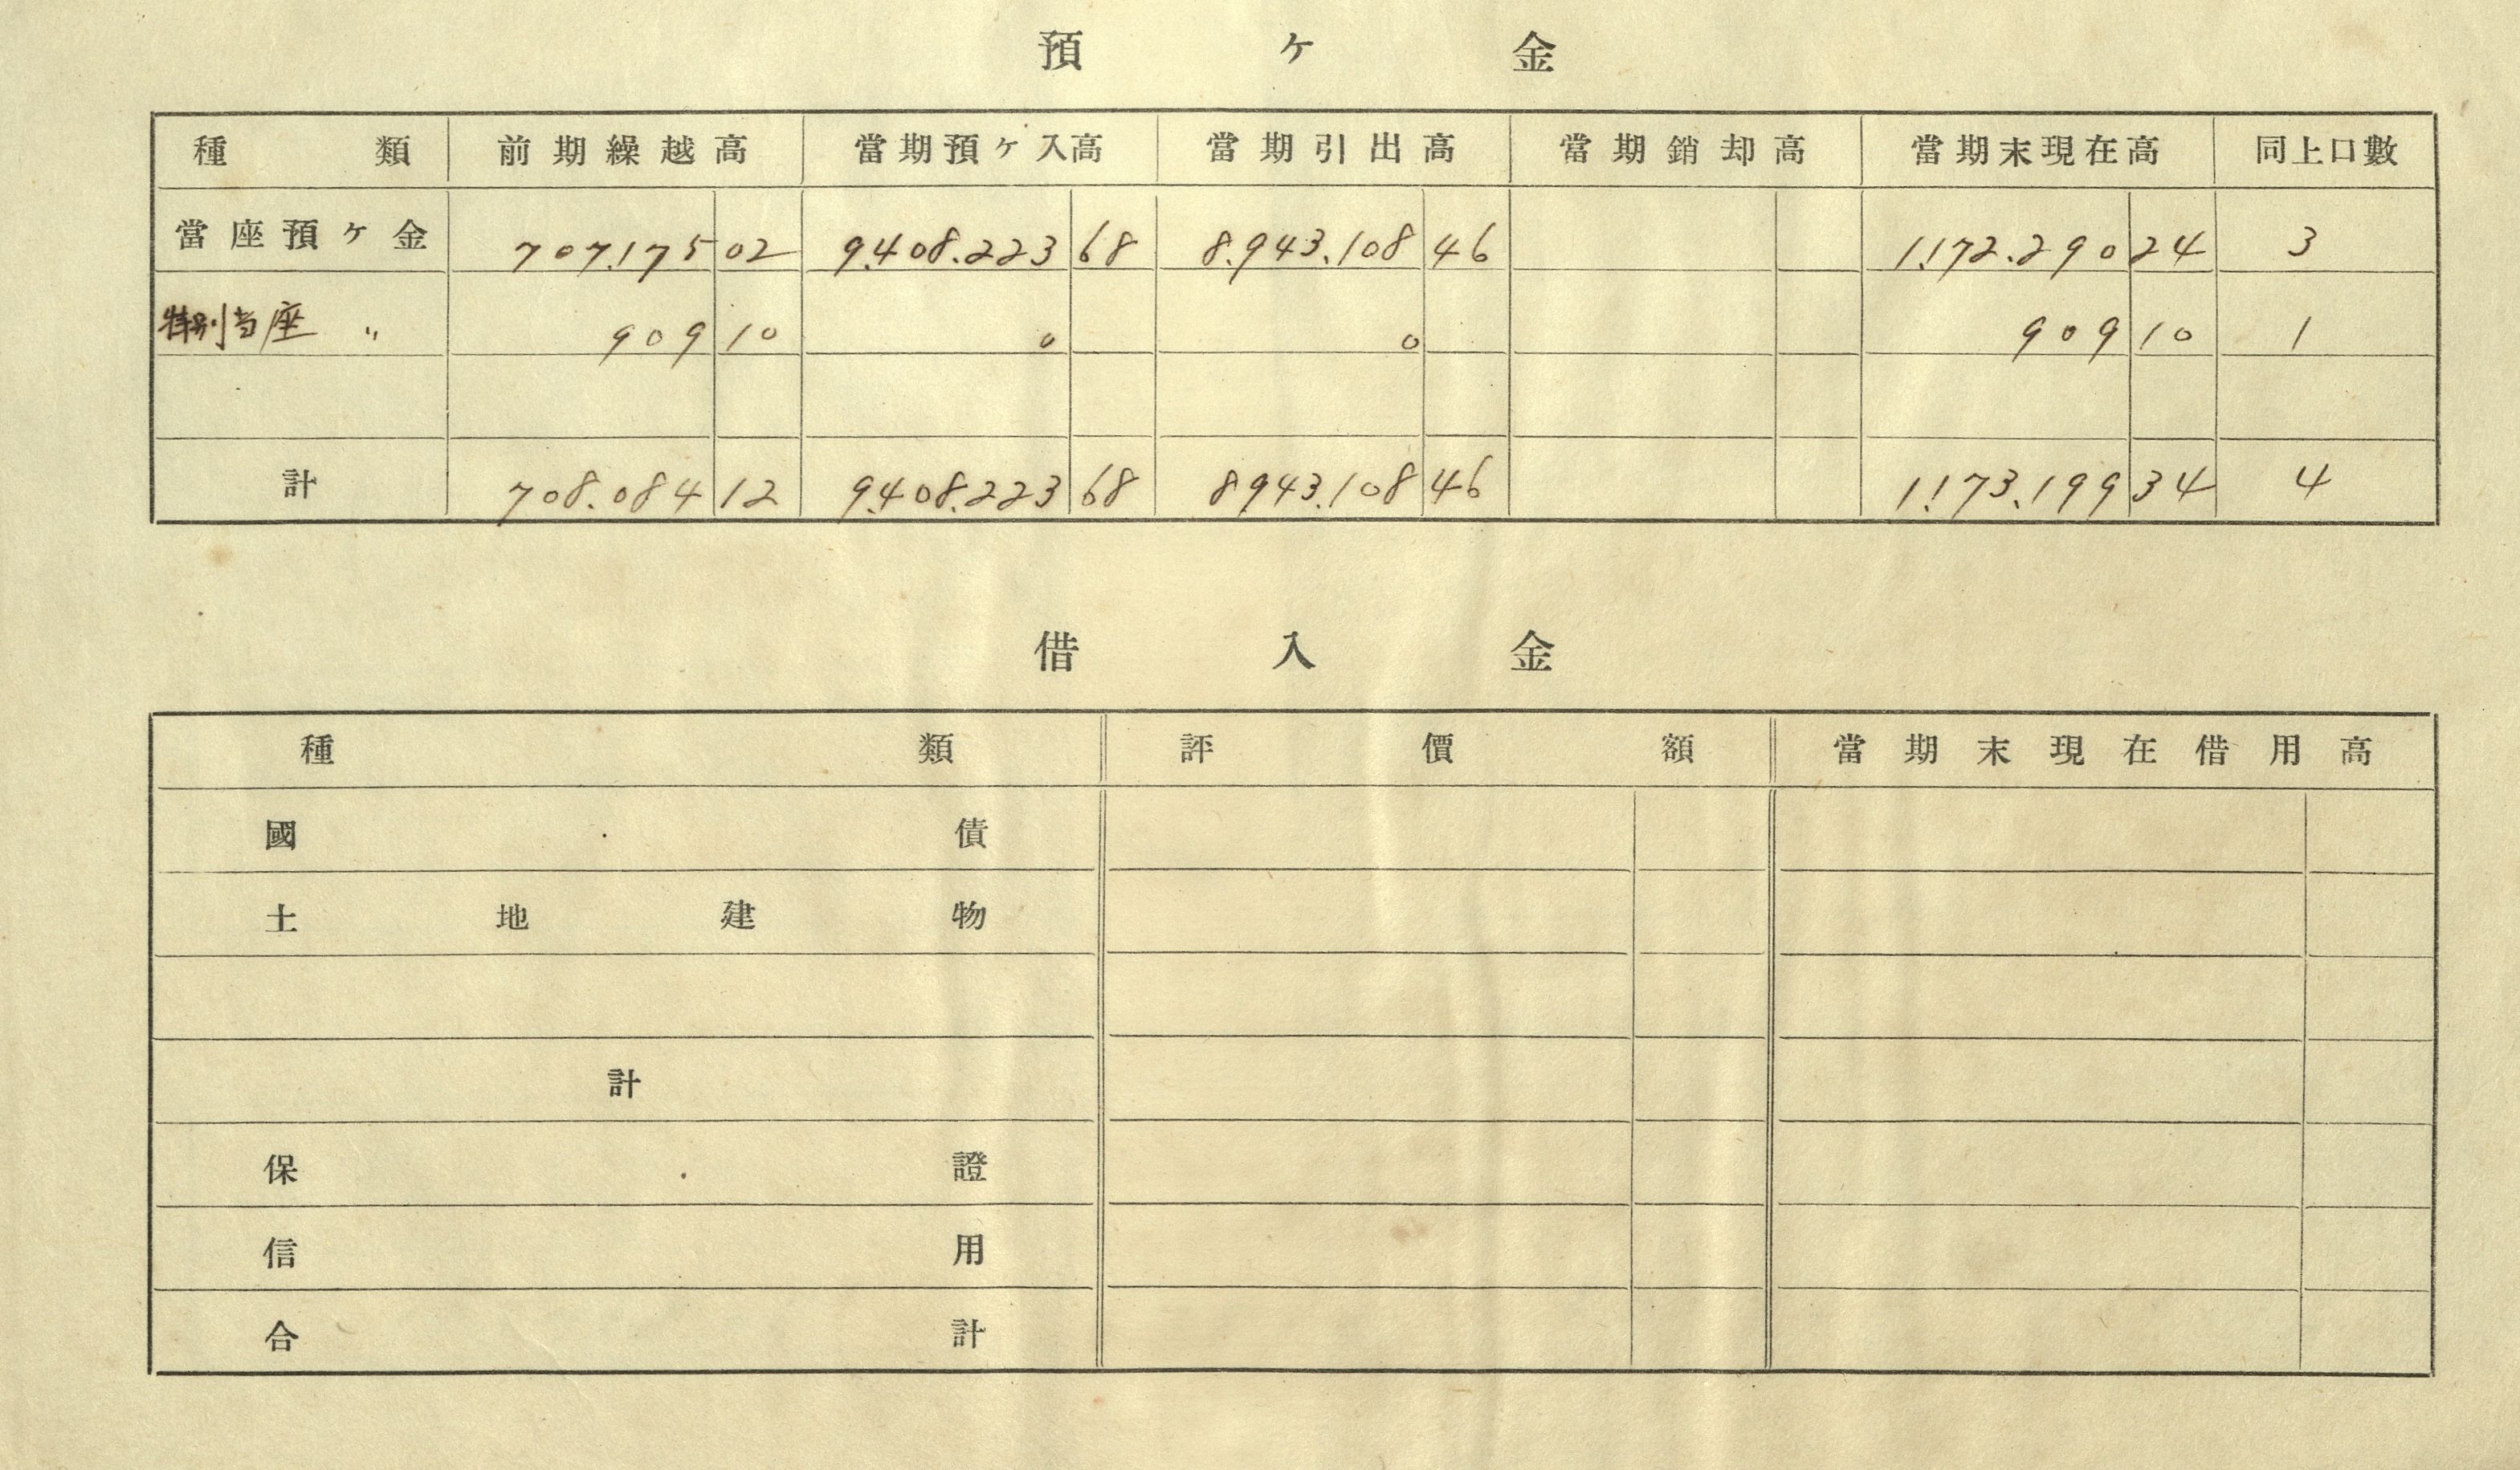 預ケ金
種類 前期繰越高 當期預ケ入高 當期引出高 當期銷却高 當期末現在高 同上口數
當座預ケ金 707.175 02 9.408.223 68 8.943.108 46 1.172.290 24 3
特別当座 〃 909 10 0 0 909 10 1
計 708.084 12 9.408.223 68 8943.108 46 1.173.199 34 4
借入金
種類 評價額 當期末現在借用高
國債
土地建物
計
保證
信用
合計